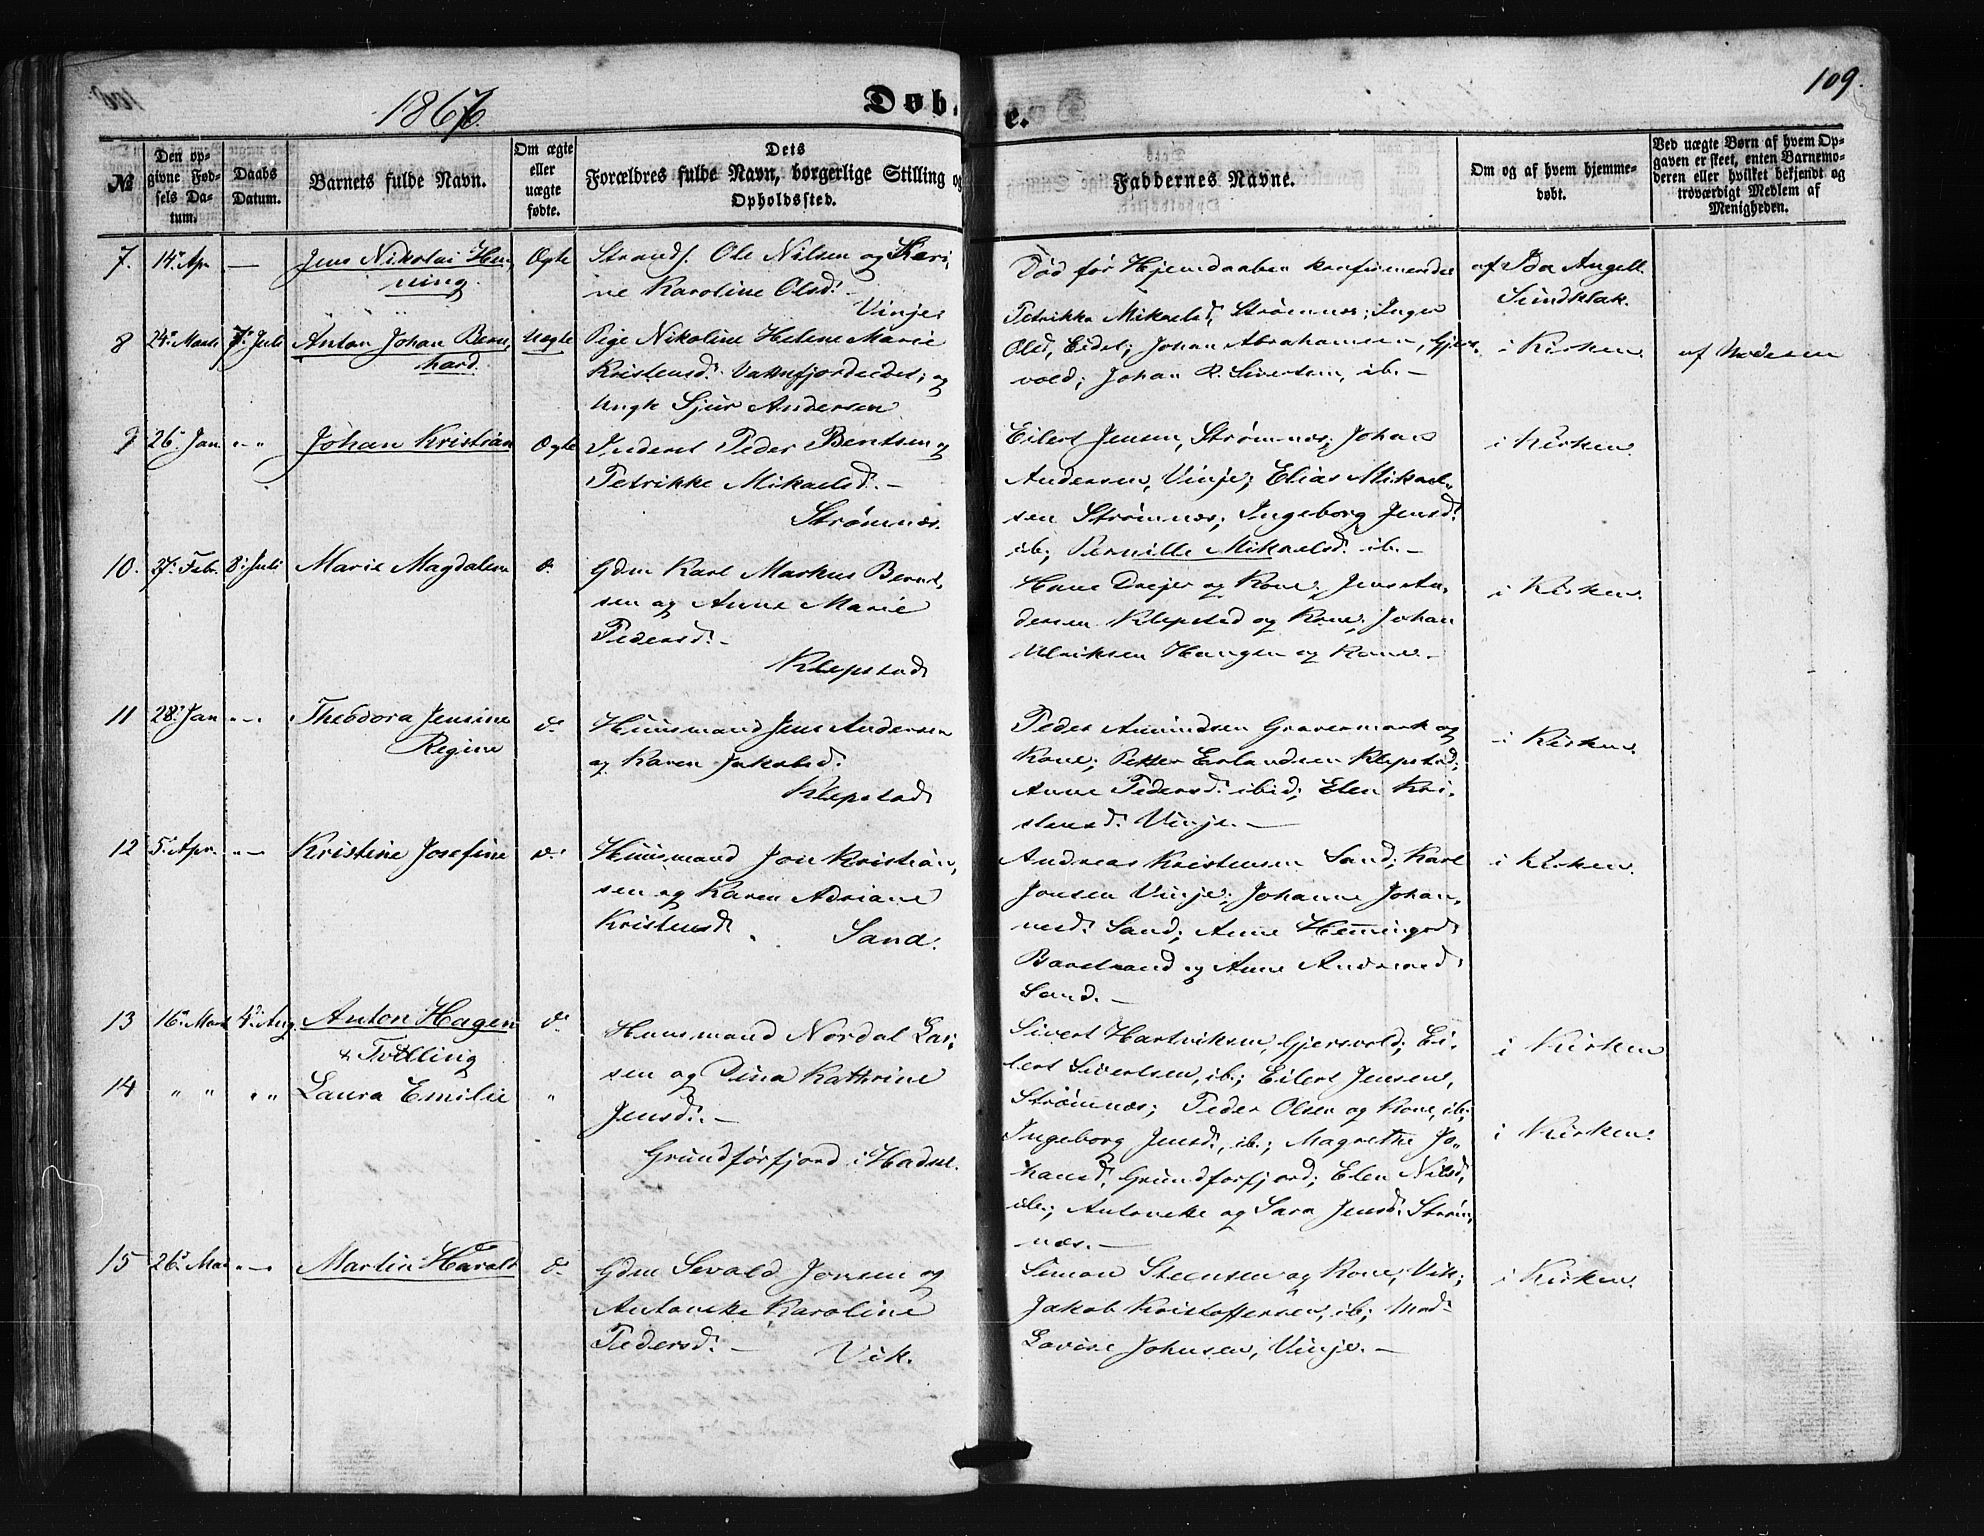 109.
1867.
Døbte.
№
Den opgivne Fødsels Datum.
Daabs Datum.
Barnets fulde Navn.
Om ægte eller uægte fødte.
Dets Forældres fulde Navn, borgerlige Stilling og Opholdssted.
Faddernes Navne.
Om og af hvem hjemmedøbt.
Ved uægte Børn af hvem Opgaven er skeet, enten Barnemoderen eller hvilket bekjendt og troværdigt Medlem af Menigheden.
7. 14. Apr. — Jens Nikolai Hen,
ning.
Ægte
Strands. Ole Nilsen og Kari,
ne Karoline Olsd. —
Vinje.
Død før Hjemdaaben konfirmeredes
af Ida Angell.
Sundklak.
8 24. Marts 7. Juli Anton Johan Bern,
hard.
Uægte
Pige Nikoline Helene Marie
Kristensd. Vatnfjordeidet; og
Ungk Sjur Andersen
Petrikke Mikaelsd, Strømnæs; Inger
Olsd, Eidet; Johan Abrahamsen, Gjers,
vold; Johan R. Sivertsen, ib. —
i Kirken.
af Moderen
9 26. Jan. „ — „ Johan Kristian
Ægte
Inderst Peder Bentsen og
Petrikke Mikaelsd. —
Strømnæs.
Eilert Jensen, Strømnæs; Johan
Andersen, Vinje; Elias Mikael,
sen Strømnæs; Ingeborg Jensd.
ib; Pernille Mikaelsd. ib. —
i Kirken.
10. 27. Febr. 8. Juli Marie Magdalene
d.
Gdm Karl Markus Bernt,
sen og Anne Marie
Pedersd. —
Klepstad
Hans Dreyer og Kone; Jens An,
dersen Klepstad og Kone; Johan
Ulriksen Haugen og Kone. —
i Kirken.
11 28. Jan „ — „ Theodora Jensine
Regine
d.
Huusmand Jens Andersen
og Karen Jakobsd.
Klepstad
Peder Amundsen Gravermark og
Kone; Petter Erlandsen Klepstad;
Anne Pedersd. ibid; Elen Kri,
stensd. Vinje. —
i Kirken.
12 5. Apr. „ — Kristine Josefine
d.
Huusmand Jon Kristian,
sen og Karen Adriane
Kristensd.
Sand.
Andreas Kristensen Sand; Karl
Jonsen Vinje; Johanne Johan,
nesd. Sand; Anne Hemingsd.
Barstrand og Anne Andersd.
Sand. —
i Kirken.
13 16. Marts 4. Aug. Anton Hagen
& Tvilling
d.
Huusmand Nordal Lar,
sen og Dina Kathrine
Jensd. —
Grundførfjord i Hadsel.
Sivert Hartviksen, Gjersvold; Ei,
lert Sivertsen, ib; Eilert Jensen,
i Kirken
14 „ „ „ „ Laura Emilie „
Strømnæs; Peder Olsen og Kone, ib;
Ingeborg Jensd, ib; Magrethe Jo,
hansd, Grundforfjord; Elen Nilsd,
ib; Antoneke og Sara Jensd. Strøm,
næs. —
i Kirken.
15 26. Mai „ — Martin Harald
d.
Gdm Sevald Jonsen og
Antoneke Karoline
Pedersd. —
Vik.
Simon Steensen og Kone, Vik;
Jakob Kristoffersen, ib; Mad.
Lovise Johnsen, Vinje. —
i Kirken.